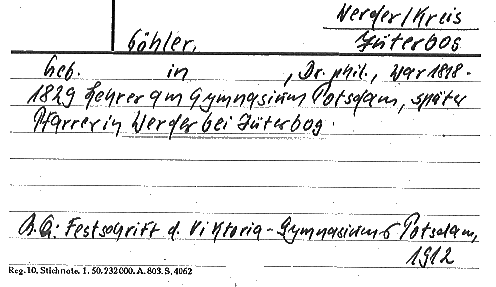 Werder/Kreis
Jüterbog
Göhler,
Geb. in , Dr. phil., war 1818-
1829 Lehrer am Gymnasium Potsdam, später
Pfarrer in Werder bei Jüterbog.
A.Q: Festschrift d. Viktoria-Gymnasiums Potsdam,
1912
Reg. 10. Stichnote. 1. 50. 232000. A. 803. S. 4062